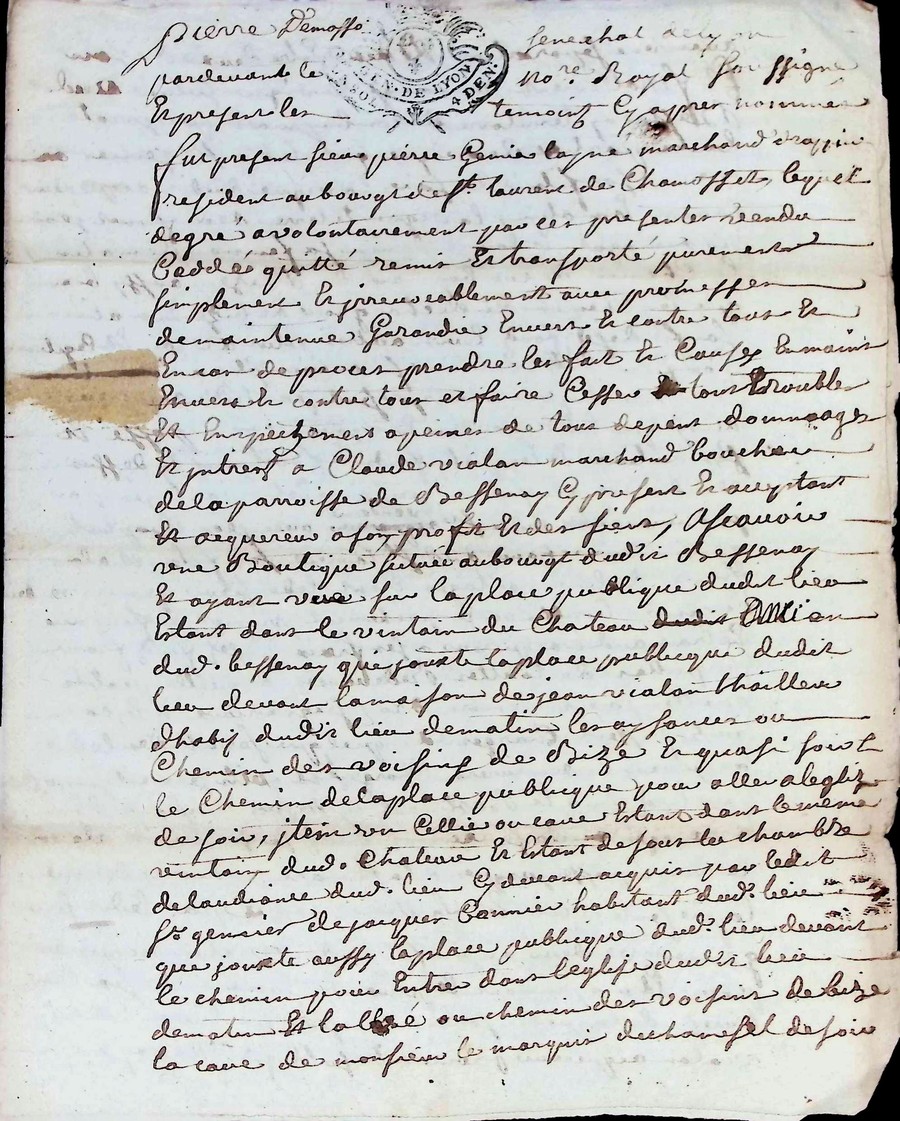 Pierre Demosso senechal de Lyon
GEN. DE LYON
SOL 4 DEN.
pardevant le nore Royal soussigné
Et presents les temoins Cy apres nommés
fut present sieur pierre Genie layné marchand drappier
resident au bourgt de st. laurent de Chamosset, lequel
de gré a volontairement par ces presentes vendu
Ceddé quitté remis Et transporté purement
simplement Et jrrevocablement avec promesses
de maintenue Garandie Envers Et contre tous Et
En cas de proces prendre les fait Et Causes En mains
Envers Et contre tous et faire Cesser tous troubles
Et Enpechement a peines de tous depens dommages
Et jntrest a Claude vialan marchand boucher
de la parroisse de Bessenay Cy present Et aceptant
Et acquereur a son profit Et des siens, Ascavoir
vne Boutique située au bourgt dudit Bessenay
Et ayant vue sur la place publique dudit lieu
Estant dans le vintain du Chateau dudit Antien
dud. bessenay qui jouxte la place publicque dudit
lieu devant la maison de jean vialan thailleur
dhabis dudit lieu de matin les aysances ou
Chemin des voisins de Bize Et quasi soir
le Chemin de la place publicque pour aller a leglize
de soir, jtem vn Cellier ou cave Estant dans le meme
vintain dud. Chateau Et Estant desous la chambre
de laudiance dud. lieu Cy devant acquis par ledit
sr. genier de jacques Connier habitant dud. lieu
que jouxte aussy la place publicque dud. lieu devant
le chemin pour Entrer dans leglise dudit lieu
de matin Et lallée ou chemin des voisins de bize
la cave de monsieur le marquis de de soir